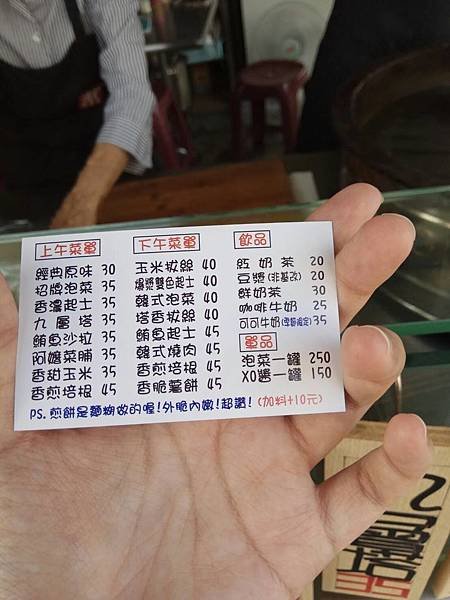 上午菜單
經典原味 30
招牌泡菜 35
香濃起士 35
九層塔 35
鮪魚沙拉 35
阿嬤菜脯 35
香甜玉米 35
香煎培根 45
下午菜單
玉米拔絲 40
爆漿雙色起士 40
韓式泡菜 40
塔香拔絲 40
鮪魚起士 45
韓式燒肉 45
香煎培根 45
香脆薯餅 45
飲品
紅奶茶 20
豆漿(非基改) 20
鮮奶茶 30
咖啡牛奶 25
可可牛奶(季節限定) 35
單品
泡菜一罐 250
XO醬一罐 150
PS.煎餅是麵糊做的喔!外脆內嫩!超讚!(加料+10元)
九層塔
35